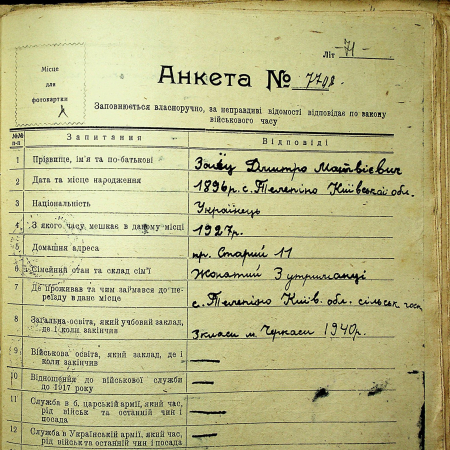 Літ -Л-
Місце
для
фотокартки
Анкета № 7708.
Заповнюється власноручно, за неправдиві відомості відповідає по закону
військового часу
№№
п-п
Запитання
Відповіді
1 Прізвище, ім'я та по-батькові
Заєць Дмитро Матвієвич
2 Дата та місце народження
1896р. с. Телепіно Київської обл.
3 Національність
Українець
4 З якого часу мешкає в даному місці
1927р.
5 Домашня адреса
пр. Старий 11
6 Сімейний стан та склад сім'ї
Жонатий 3 утриманці
7 Де проживав та чим займався до пе-
реїзду в дане місце
с. Телепіно Київ. обл. сільськ. госп
8 Загальна освіта, який учбовий заклад,
де і коли закінчив
3 класи м. Черкаси 1940р.
9 Військова освіта, який заклад, де і
коли закінчив
—
10 Відношення до військової служби
до 1917 року
—
11 Служба в б. царській армії, який час,
рід військ та останній чин і
посада
—
12 Служба в Українській армії, який час,
рід військ та останній чин і посада
—